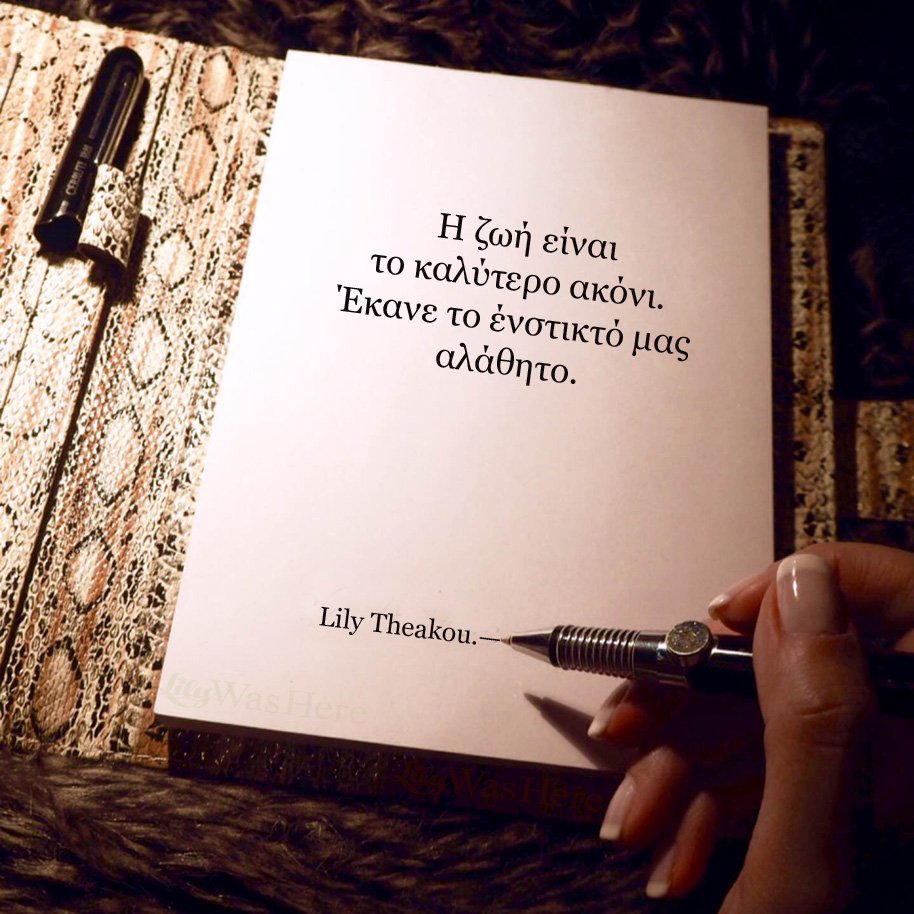 Η ζωή είναι
το καλύτερο ακόνι.
Έκανε το ένστικτό μας
αλάθητο.
Lily Theakou.—
LilyWasHere
LilyWasHere